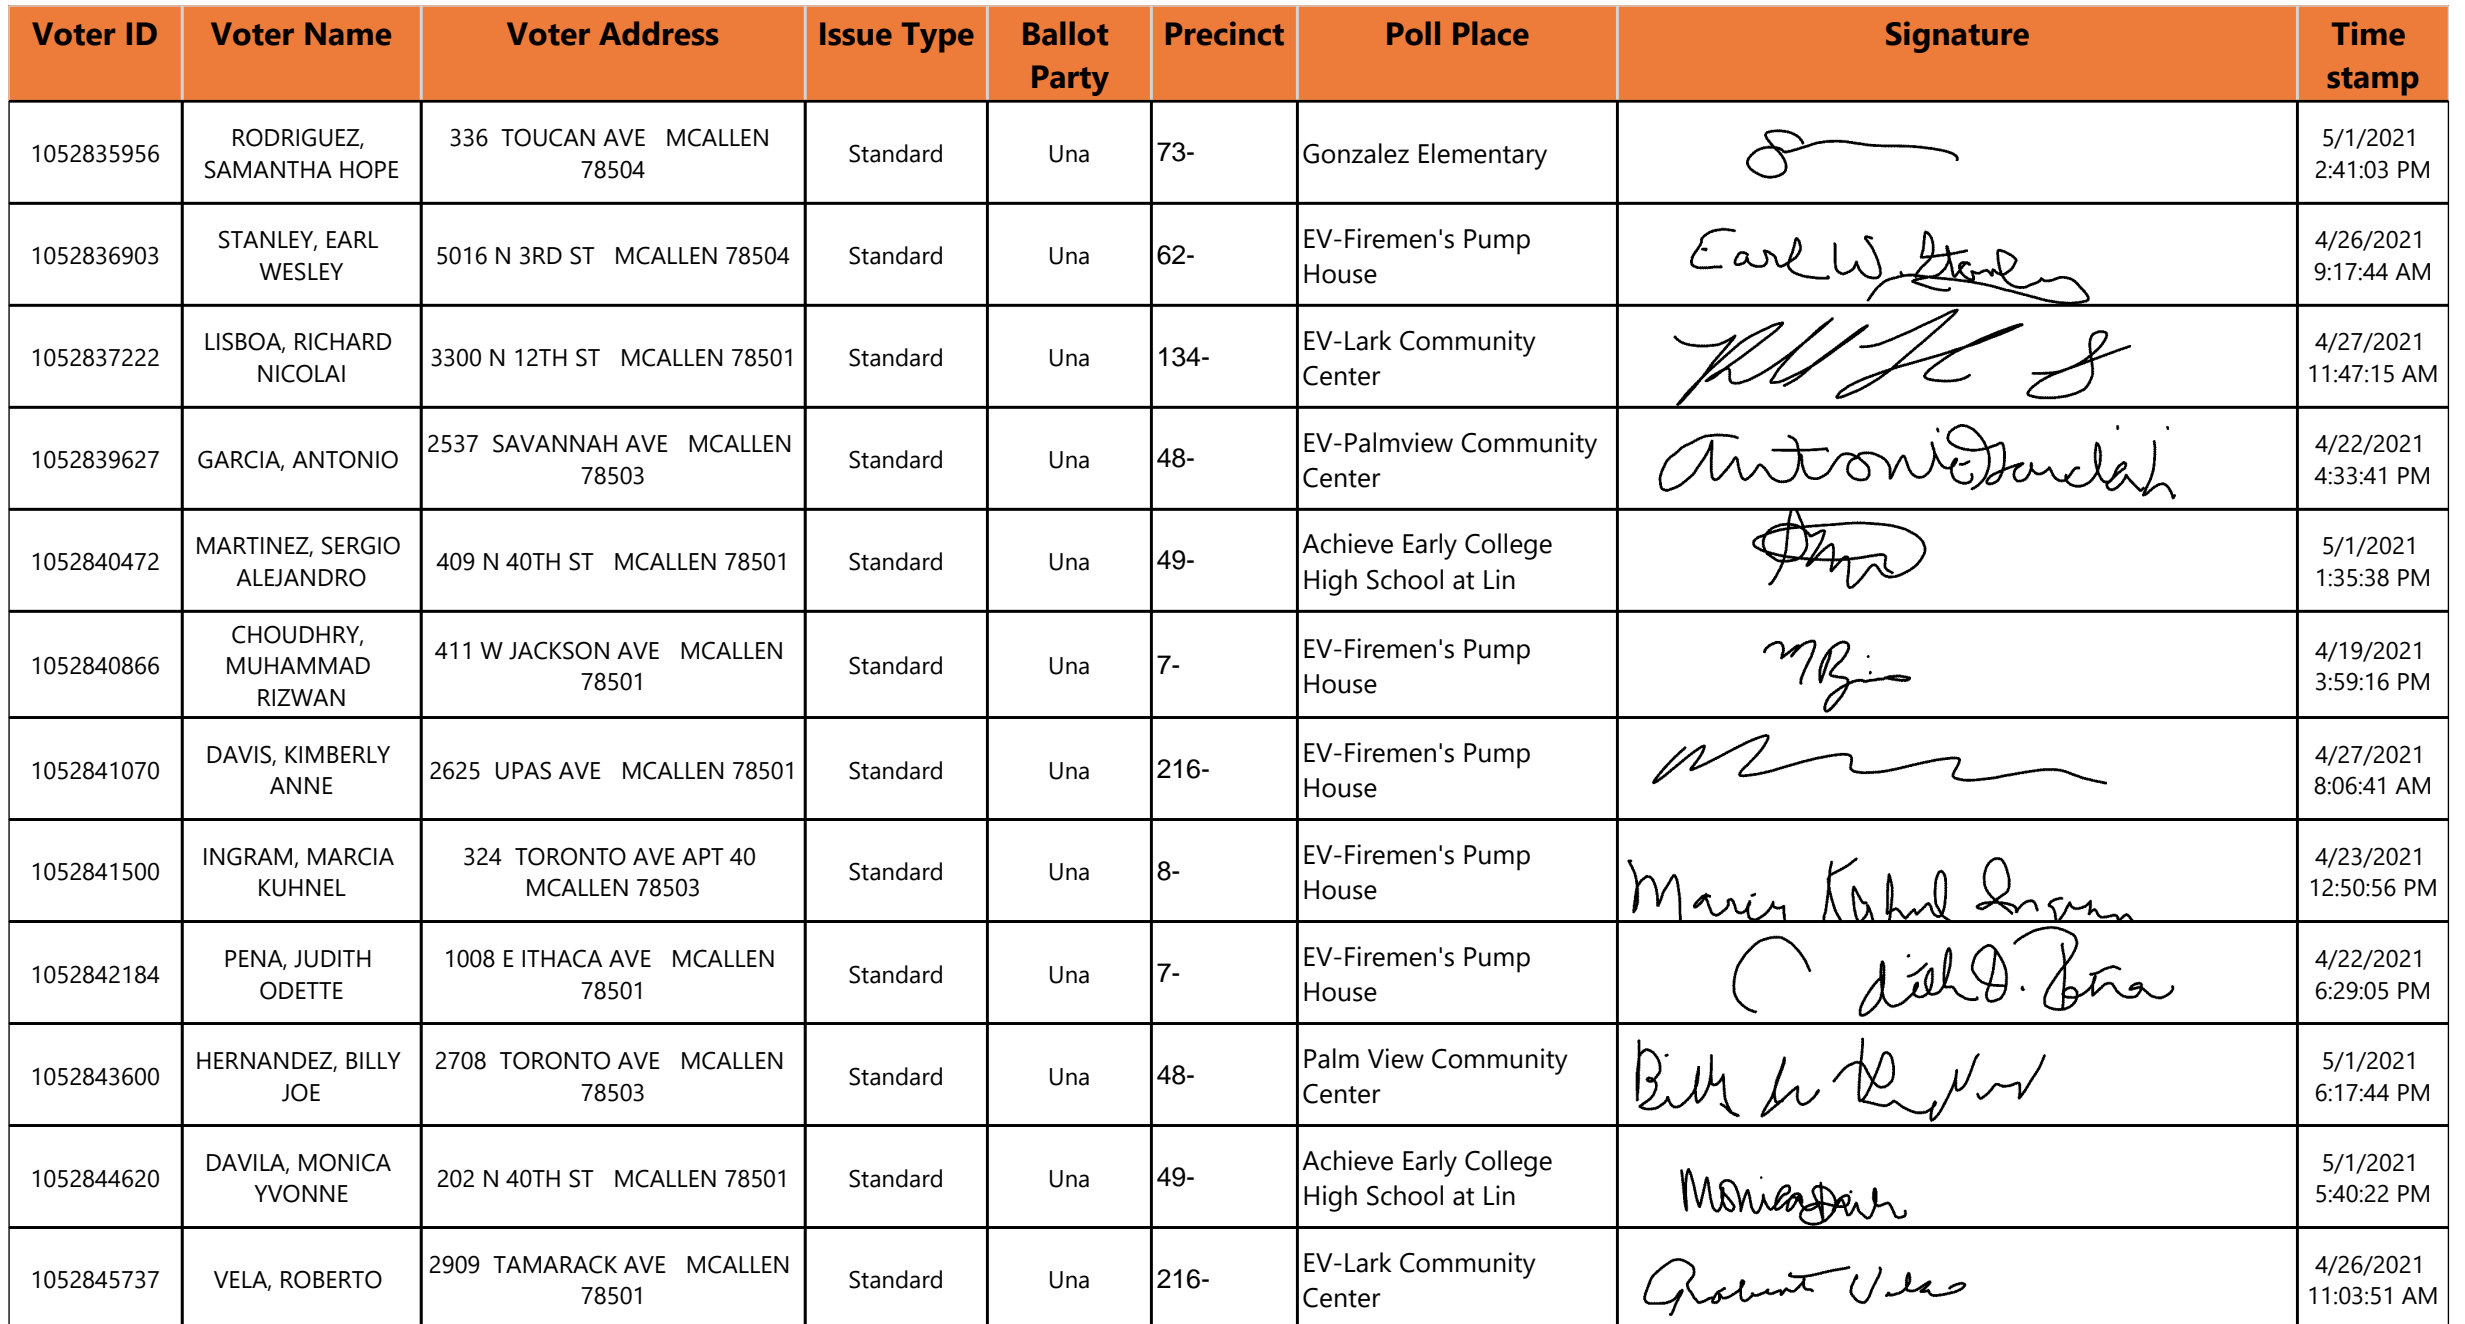 Voter ID Voter Name Voter Address Issue Type Ballot Party Precinct Poll Place Signature Time stamp
1052835956 RODRIGUEZ, SAMANTHA HOPE 336 TOUCAN AVE MCALLEN 78504 Standard Una 73- Gonzalez Elementary 5/1/2021 2:41:03 PM
1052836903 STANLEY, EARL WESLEY 5016 N 3RD ST MCALLEN 78504 Standard Una 62- EV-Firemen's Pump House Earl W. Stanley 4/26/2021 9:17:44 AM
1052837222 LISBOA, RICHARD NICOLAI 3300 N 12TH ST MCALLEN 78501 Standard Una 134- EV-Lark Community Center 4/27/2021 11:47:15 AM
1052839627 GARCIA, ANTONIO 2537 SAVANNAH AVE MCALLEN 78503 Standard Una 48- EV-Palmview Community Center Antonio Garcia 4/22/2021 4:33:41 PM
1052840472 MARTINEZ, SERGIO ALEJANDRO 409 N 40TH ST MCALLEN 78501 Standard Una 49- Achieve Early College High School at Lin 5/1/2021 1:35:38 PM
1052840866 CHOUDHRY, MUHAMMAD RIZWAN 411 W JACKSON AVE MCALLEN 78501 Standard Una 7- EV-Firemen's Pump House 4/19/2021 3:59:16 PM
1052841070 DAVIS, KIMBERLY ANNE 2625 UPAS AVE MCALLEN 78501 Standard Una 216- EV-Firemen's Pump House 4/27/2021 8:06:41 AM
1052841500 INGRAM, MARCIA KUHNEL 324 TORONTO AVE APT 40 MCALLEN 78503 Standard Una 8- EV-Firemen's Pump House Marcia Kuhnel Ingram 4/23/2021 12:50:56 PM
1052842184 PENA, JUDITH ODETTE 1008 E ITHACA AVE MCALLEN 78501 Standard Una 7- EV-Firemen's Pump House dith O. Peña 4/22/2021 6:29:05 PM
1052843600 HERNANDEZ, BILLY JOE 2708 TORONTO AVE MCALLEN 78503 Standard Una 48- Palm View Community Center Billy 5/1/2021 6:17:44 PM
1052844620 DAVILA, MONICA YVONNE 202 N 40TH ST MCALLEN 78501 Standard Una 49- Achieve Early College High School at Lin Monica 5/1/2021 5:40:22 PM
1052845737 VELA, ROBERTO 2909 TAMARACK AVE MCALLEN 78501 Standard Una 216- EV-Lark Community Center Roberto Vela 4/26/2021 11:03:51 AM